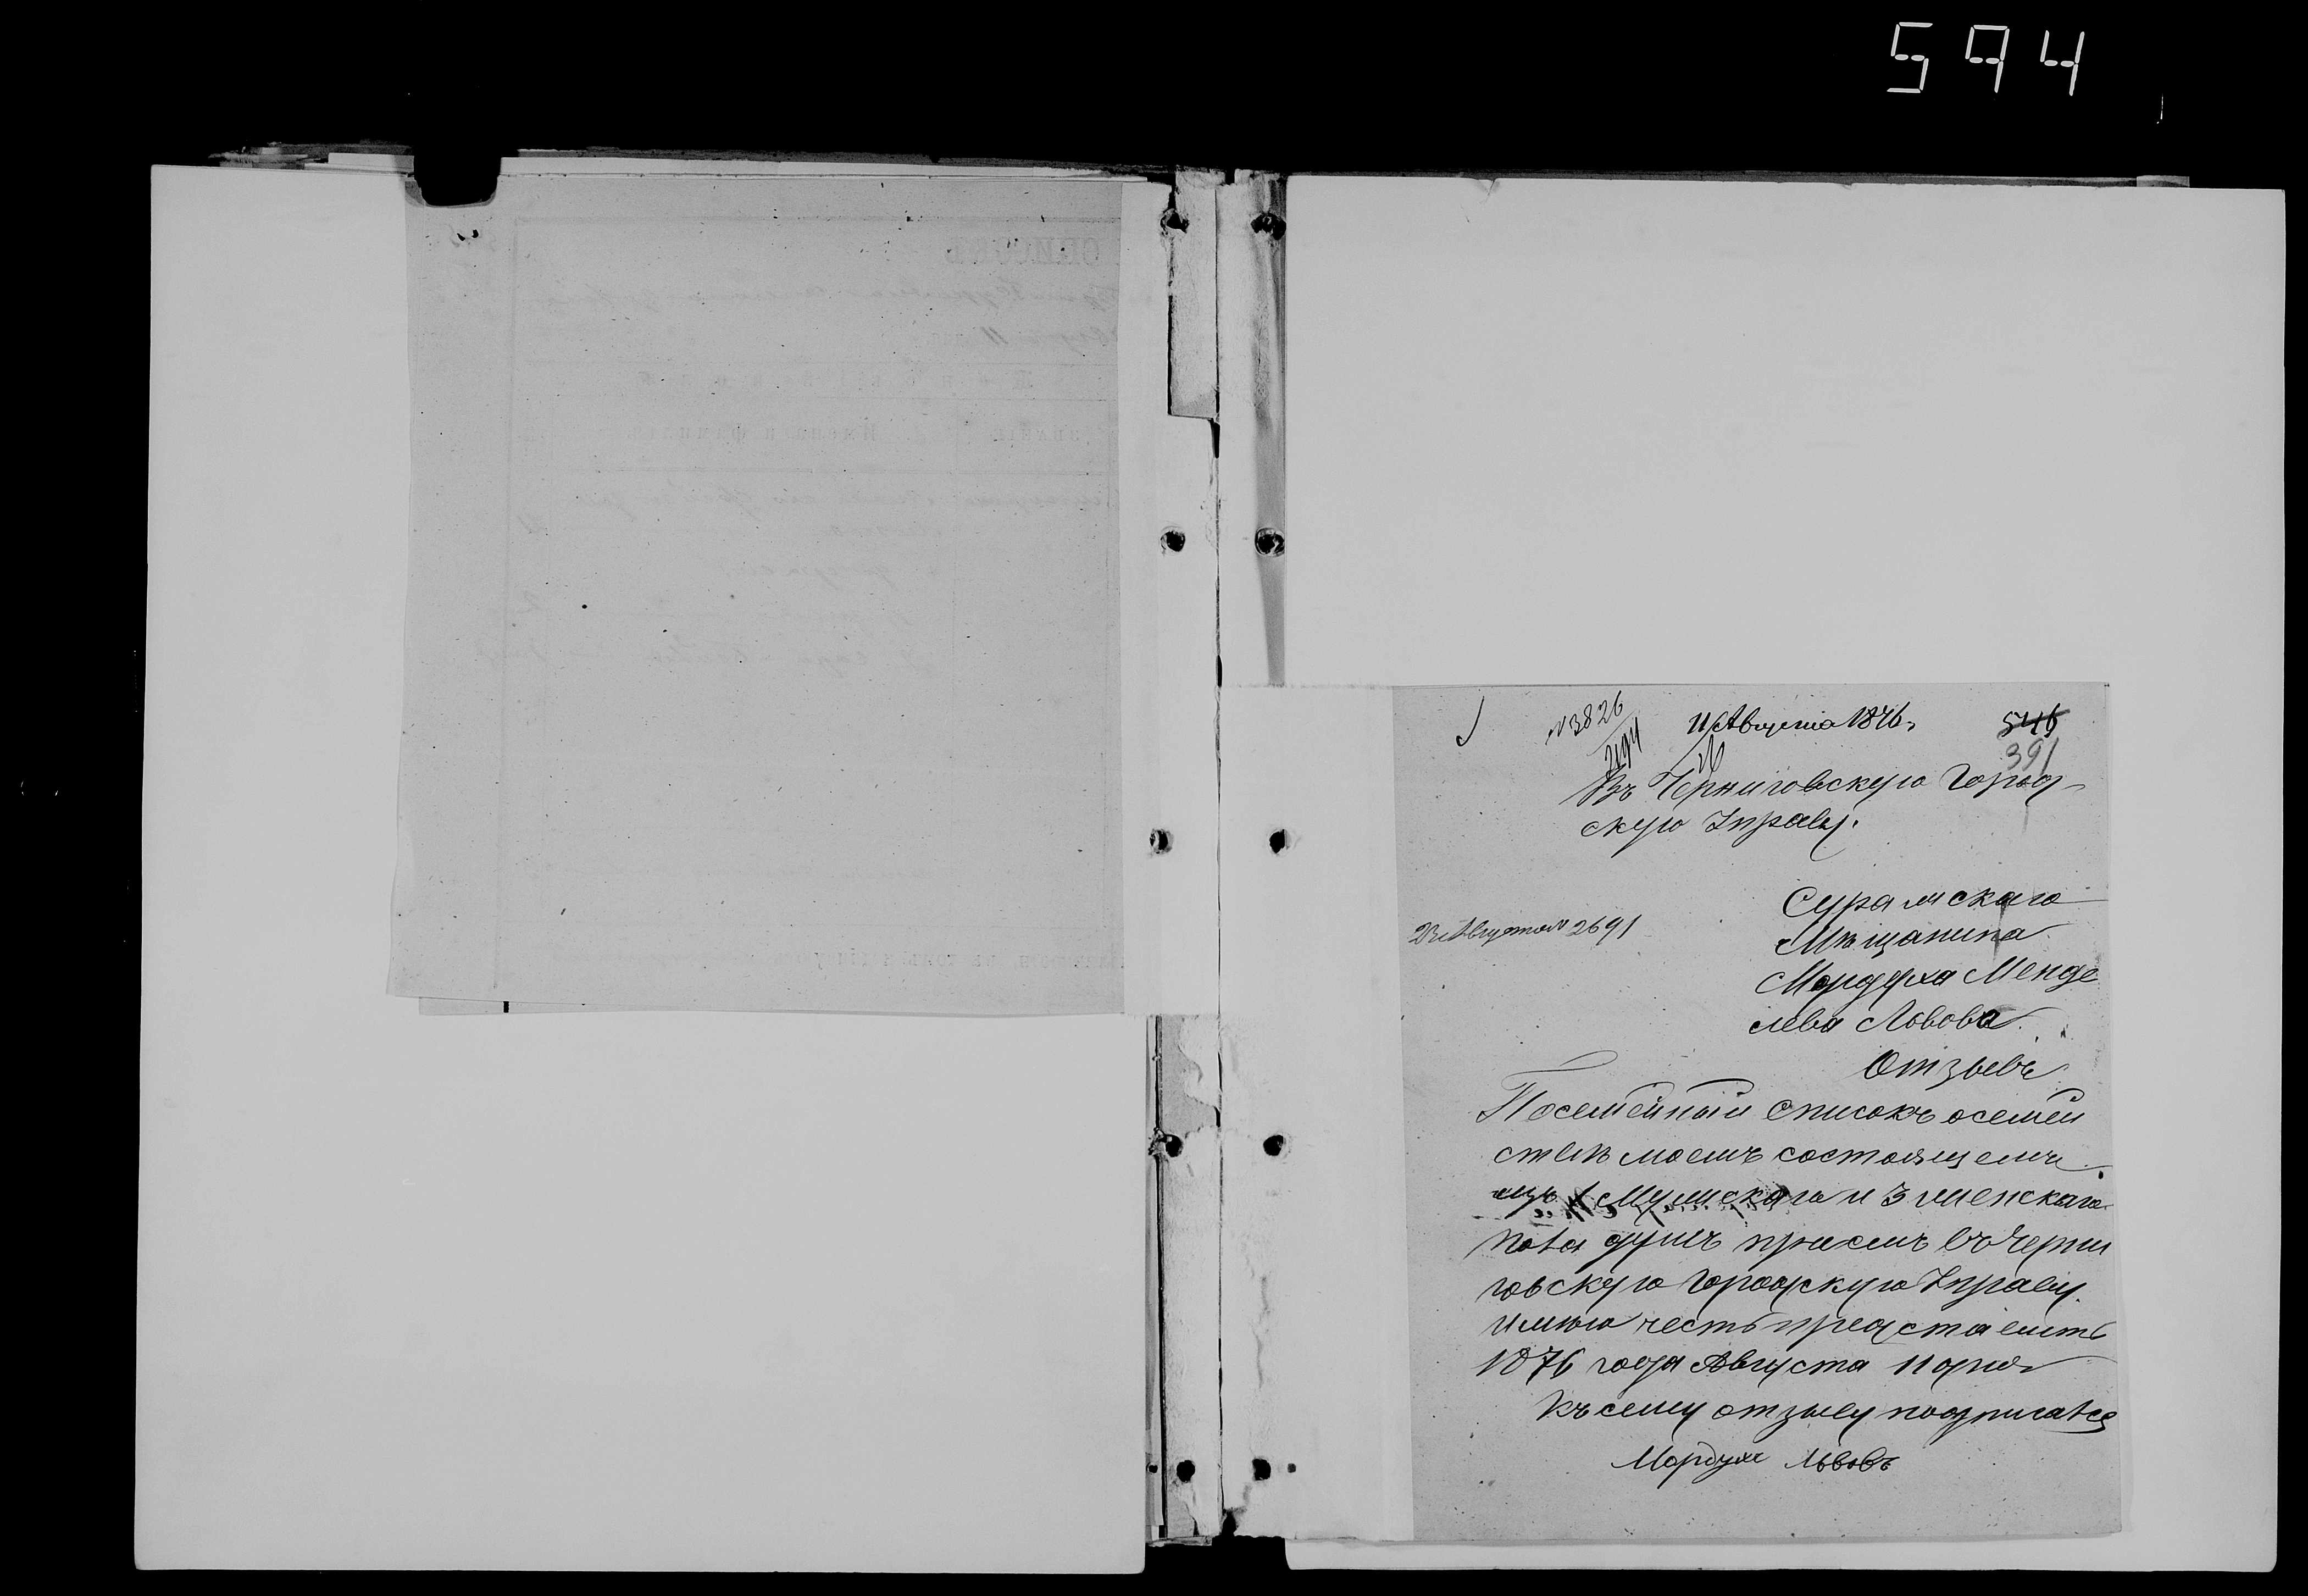 594
№ 3826
2194
11 Августа 1876 г
546
391
Въ Черниговскую Город-
скую Управу.
Суражскаго
Мѣщанина
Мордуха Менде
лева Львова.
23 Августа № 2691
Отзывъ
Посемейный списокъ о семей
ствѣ моемъ состоящемъ
изъ 1 Мужскаго и 3 женскаго
пола душъ при семъ въ Черни
говскую Городскую Управу.
имѣю честь представить
1876 года Августа 11 дня
Къ сему отзыву подписался
Мордухъ Львовъ